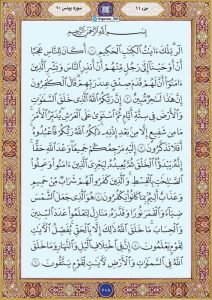 جزء ۱۱
سوره یونس ۱۰
بِسْمِ اللَّهِ الرَّحْمَٰنِ الرَّحِيمِ
الٓر تِلْكَ ءَايَٰتُ الْكِتَٰبِ الْحَكِيمِ ۱ أَكَانَ لِلنَّاسِ عَجَبًا
أَنْ أَوْحَيْنَا إِلَىٰ رَجُلٍ مِنْهُمْ أَنْ أَنْذِرِ النَّاسَ وَبَشِّرِ الَّذِينَ
ءَامَنُوا أَنَّ لَهُمْ قَدَمَ صِدْقٍ عِنْدَ رَبِّهِمْ قَالَ الْكَٰفِرُونَ
إِنَّ هَٰذَا لَسَٰحِرٌ مُبِينٌ ۲ إِنَّ رَبَّكُمُ اللَّهُ الَّذِى خَلَقَ السَّمَٰوَٰتِ
وَالْأَرْضَ فِى سِتَّةِ أَيَّامٍ ثُمَّ اسْتَوَىٰ عَلَى الْعَرْشِ يُدَبِّرُ الْأَمْرَ
مَا مِنْ شَفِيعٍ إِلَّا مِنْ بَعْدِ إِذْنِهِ ذَٰلِكُمُ اللَّهُ رَبُّكُمْ فَاعْبُدُوهُ
أَفَلَا تَذَكَّرُونَ ۳ إِلَيْهِ مَرْجِعُكُمْ جَمِيعًا وَعْدَ اللَّهِ حَقًّا إِنَّهُ
يَبْدَؤُا الْخَلْقَ ثُمَّ يُعِيدُهُ لِيَجْزِىَ الَّذِينَ ءَامَنُوا وَعَمِلُوا
الصَّٰلِحَٰتِ بِالْقِسْطِ وَالَّذِينَ كَفَرُوا لَهُمْ شَرَابٌ مِنْ حَمِيمٍ
وَعَذَابٌ أَلِيمٌ بِمَا كَانُوا يَكْفُرُونَ ۴ هُوَ الَّذِى جَعَلَ الشَّمْسَ
ضِيَاءً وَالْقَمَرَ نُورًا وَقَدَّرَهُ مَنَازِلَ لِتَعْلَمُوا عَدَدَ السِّنِينَ
وَالْحِسَابَ مَا خَلَقَ اللَّهُ ذَٰلِكَ إِلَّا بِالْحَقِّ يُفَصِّلُ الْءَايَٰتِ
لِقَوْمٍ يَعْلَمُونَ ۵ إِنَّ فِى اخْتِلَٰفِ الَّيْلِ وَالنَّهَارِ وَمَا خَلَقَ
اللَّهُ فِى السَّمَٰوَٰتِ وَالْأَرْضِ لَءَايَٰتٍ لِقَوْمٍ يَتَّقُونَ ۶
۲۰۸